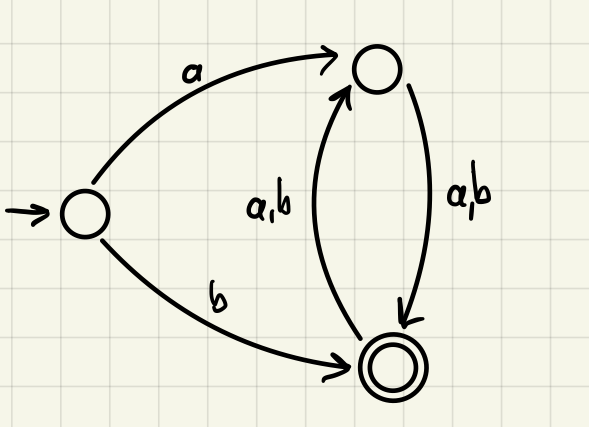 a
a,b
a,b
b